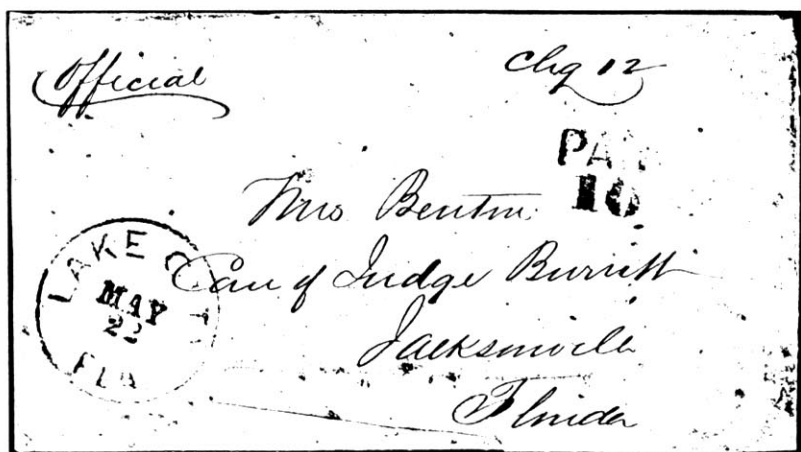 Official
Chg 12
PAID
10
Mrs Benton
Care of Judge Burritt
Jacksonville
Florida
LAKE CITY
MAY
22
FLA